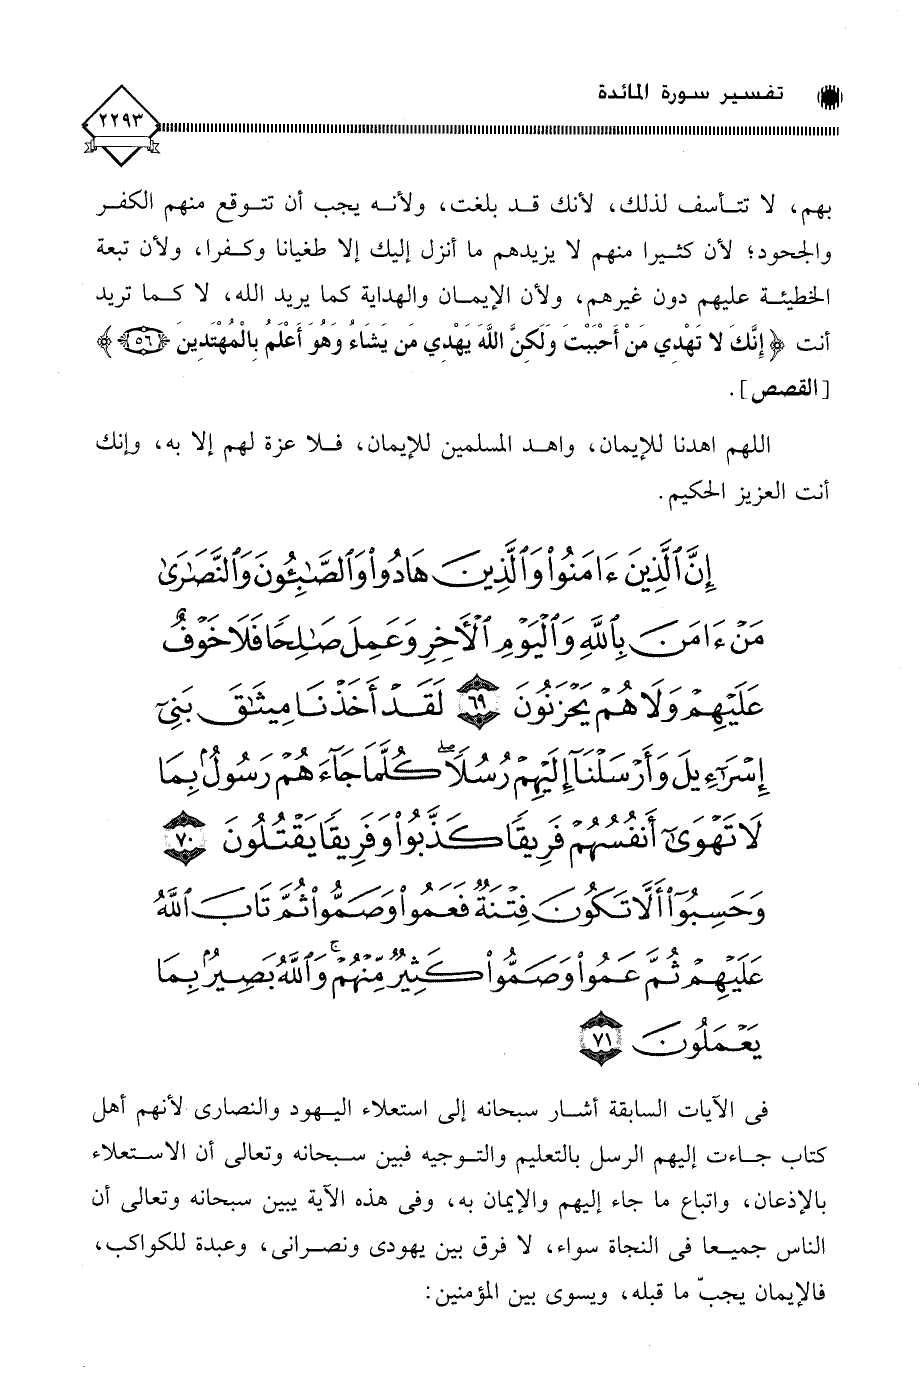 تفسير سورة المائدة
٢٢٩٣
بهم، لا تتأسف لذلك، لأنك قد بلغت، ولأنه يجب أن تتوقع منهم الكفر
والجحود؛ لأن كثيرا منهم لا يزيدهم ما أنزل إليك إلا طغيانا وكفرا، ولأن تبعة
الخطيئة عليهم دون غيرهم، ولأن الإيمان والهداية كما يريد الله، لا كما تريد
أنت ﴿إِنَّكَ لا تَهْدِي مَنْ أَحْبَبْتَ وَلَكِنَّ اللَّهَ يَهْدِي مَن يَشَاءُ وَهُوَ أَعْلَمُ بِالْمُهْتَدِينَ ﴿٥٦﴾﴾
[القصص].
اللهم اهدنا للإيمان، واهد المسلمين للإيمان، فلا عزة لهم إلا به، وإنك
أنت العزيز الحكيم.
إِنَّ ٱلَّذِينَ ءَامَنُوا۟ وَٱلَّذِينَ هَادُوا۟ وَٱلصَّـٰبِـُٔونَ وَٱلنَّصَـٰرَىٰ
مَنْ ءَامَنَ بِٱللَّهِ وَٱلْيَوْمِ ٱلْـَٔاخِرِ وَعَمِلَ صَـٰلِحًا فَلَا خَوْفٌ
عَلَيْهِمْ وَلَا هُمْ يَحْزَنُونَ ٦٩ لَقَدْ أَخَذْنَا مِيثَـٰقَ بَنِىٓ
إِسْرَٰٓءِيلَ وَأَرْسَلْنَآ إِلَيْهِمْ رُسُلًا ۖ كُلَّمَا جَآءَهُمْ رَسُولٌۢ بِمَا
لَا تَهْوَىٰٓ أَنفُسُهُمْ فَرِيقًا كَذَّبُوا۟ وَفَرِيقًا يَقْتُلُونَ ٧٠
وَحَسِبُوٓا۟ أَلَّا تَكُونَ فِتْنَةٌ فَعَمُوا۟ وَصَمُّوا۟ ثُمَّ تَابَ ٱللَّهُ
عَلَيْهِمْ ثُمَّ عَمُوا۟ وَصَمُّوا۟ كَثِيرٌ مِّنْهُمْ ۚ وَٱللَّهُ بَصِيرٌۢ بِمَا
يَعْمَلُونَ ٧١
فى الآيات السابقة أشار سبحانه إلى استعلاء اليهود والنصارى لأنهم أهل
كتاب جاءت إليهم الرسل بالتعليم والتوجيه فبين سبحانه وتعالى أن الاستعلاء
بالإذعان، واتباع ما جاء إليهم والإيمان به، وفى هذه الآية يبين سبحانه وتعالى أن
الناس جميعا فى النجاة سواء، لا فرق بين يهودى ونصرانى، وعبدة للكواكب،
فالإيمان يجبّ ما قبله، ويسوى بين المؤمنين: